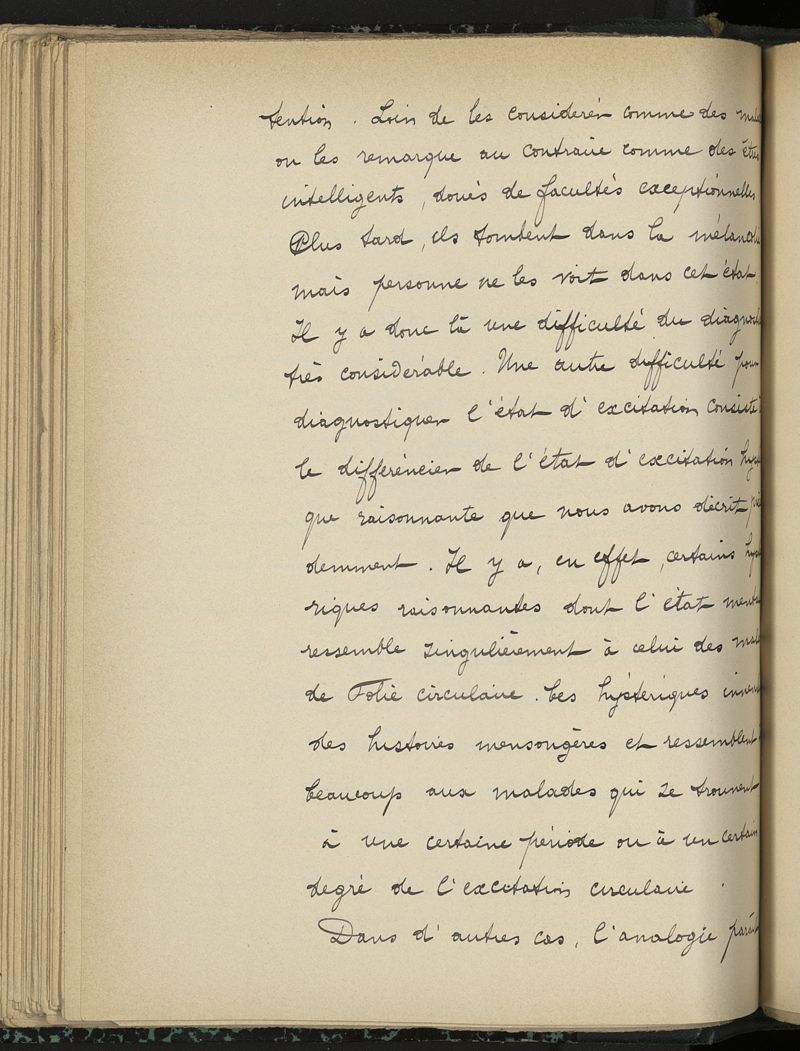 tention. Loin de les considerér comme des
on les remarque au contraire comme des êtres
intelligents, doués de facultés exceptionnelles
Plus tard, ils tombent dans la
mais personne ne les voit dans cet état
Il y a donc là une difficulté du
très considérable. Une autre difficulté pour
diagnostiquer l'état d'excitation consiste
le differéncier de l'état d'excitation
que raisonnante que nous avons décrit
demment. Il y a, en effet, certains
riques raisonnantes dont l'état
ressemble singulièrement à celui des
de Folie circulaire. Ces hystériques
des histoires mensongères et ressemblent
beaucoup aux malades qui se trouvent
à une certaine période ou à un certain
degré de l'excitation circulaire.
Dans d'autres cas, l'analogie paraît